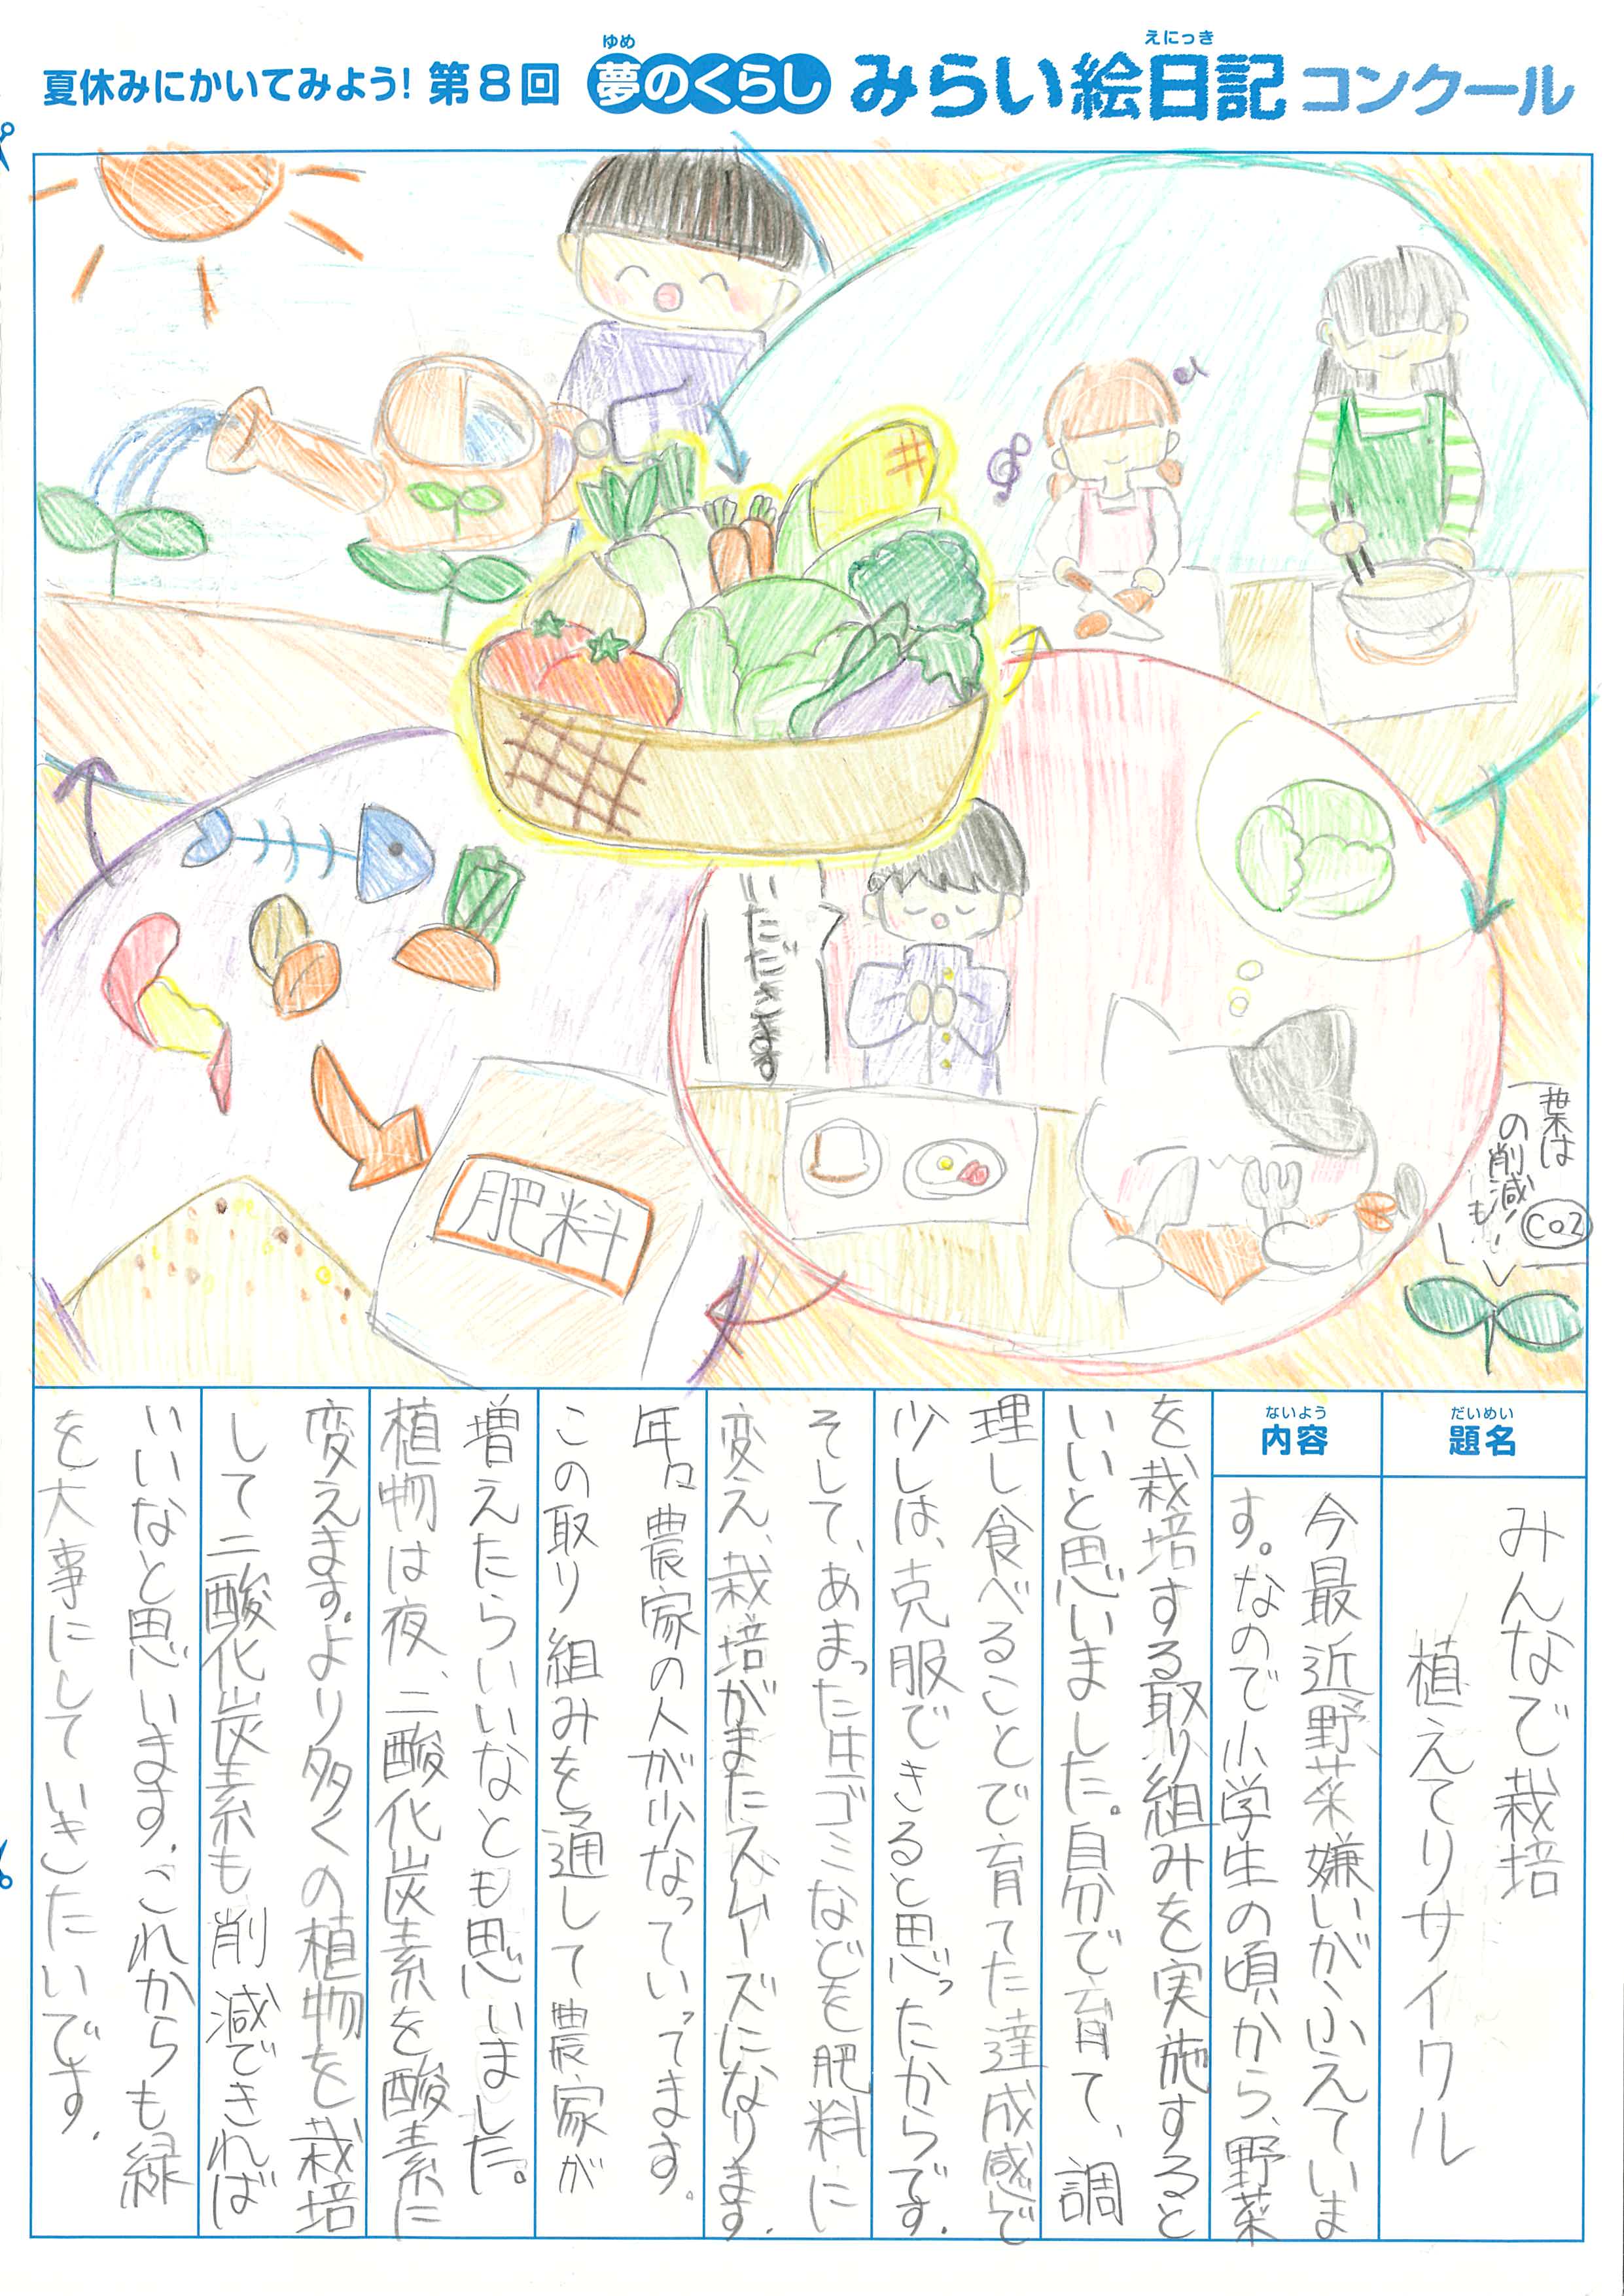 夏休みにかいてみよう! 第8回 夢のくらし みらい絵日記 コンクール
ゆめ
えにっき
いただきます
葉は
CO2
の削減も!
肥料
だいめい
題名
みんなで栽培
植えてリサイクル
ないよう
内容
今最近野菜嫌いがふえていま
す。なので小学生の頃から、野菜
を栽培する取り組みを実施すると
いいと思いました。自分で育て、調
理し食べることで育てた達成感で
少しは、克服できると思ったからです。
そして、あまった生ゴミなどを肥料に
変え、栽培がまたスムーズになります。
年々農家の人が少なっていってます。
この取り組みを通して農家が
増えたらいいなとも思いました。
植物は夜、二酸化炭素を酸素に
変えます。より多くの植物を栽培
して二酸化炭素も削減できれば
いいなと思います。これからも緑
を大事にしていきたいです。